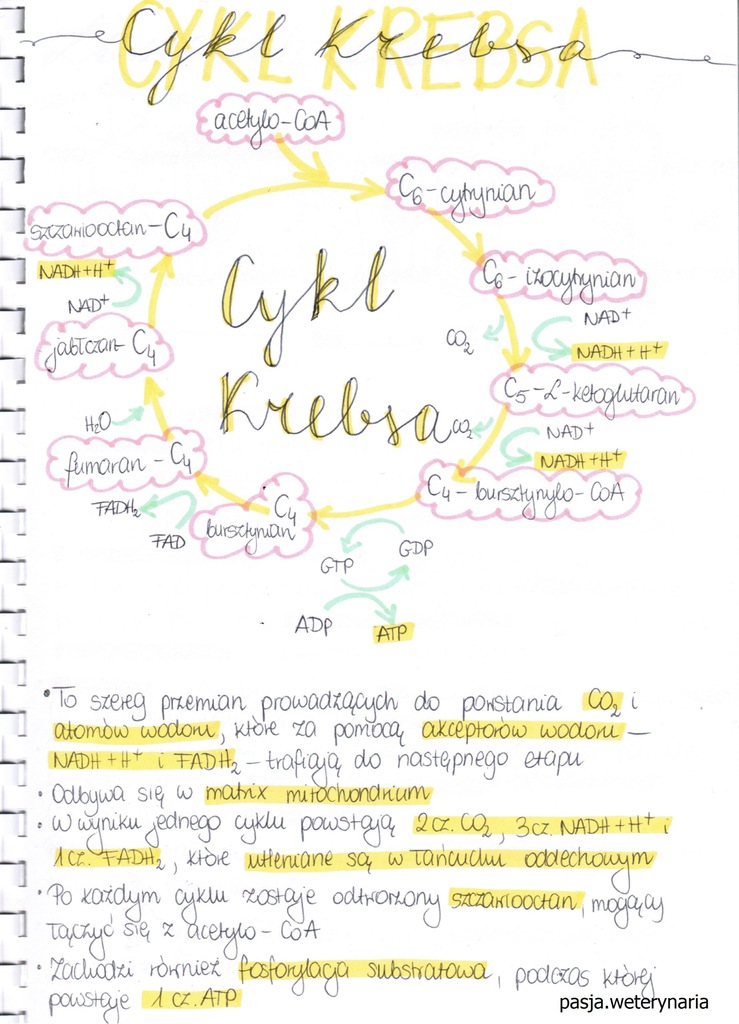 CYKL KREBSA
Cykl Krebsa
acetylo-CoA
C₆-cytrynian
C₆-izocytrynian
NAD⁺
CO₂
NADH+H⁺
C₅-α-ketoglutaran
CO₂
NAD⁺
NADH+H⁺
C₄-bursztynylo-CoA
GDP
GTP
ADP
ATP
C₄
bursztynian
FAD
FADH₂
fumaran-C₄
H₂O
jabłczan-C₄
NAD⁺
NADH+H⁺
szczawiooctan-C₄
Cykl
Krebsa
• To szereg przemian prowadzących do powstania CO₂ i
atomów wodoru, które za pomocą akceptorów wodoru –
NADH+H⁺ i FADH₂ – trafiają do następnego etapu
• Odbywa się w matrix mitochondrium
• W wyniku jednego cyklu powstają 2 cz. CO₂, 3 cz. NADH+H⁺ i
1 cz. FADH₂, które utleniane są w łańcuchu oddechowym
• Po każdym cyklu zostaje odtworzony szczawiooctan, mogący
łączyć się z acetylo-CoA
• Zachodzi również fosforylacja substratowa, podczas której
powstaje 1 cz. ATP
pasja.weterynaria